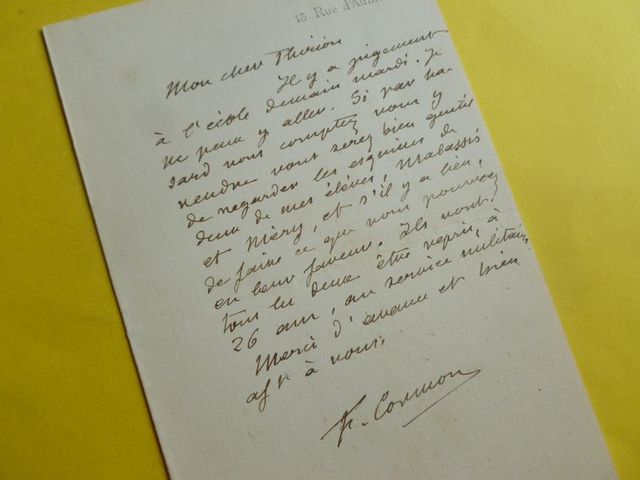 13 Rue d'Aum
Mon cher Thirion
Il y a jugement
à l'école demain mardi. Je
ne peux y aller. Si par ha-
sard vous comptez vous y
rendre vous serez bien gentil
de regarder les esquisses de
deux de mes élèves, Malassis
et Méry, et s'il y a lieu,
de faire ce que vous pourrez
en leur faveur. Ils vont
tous les deux être repris, à
26 ans, au service militaire
Merci d'avance et bien
aff à vous.
F. Cormon